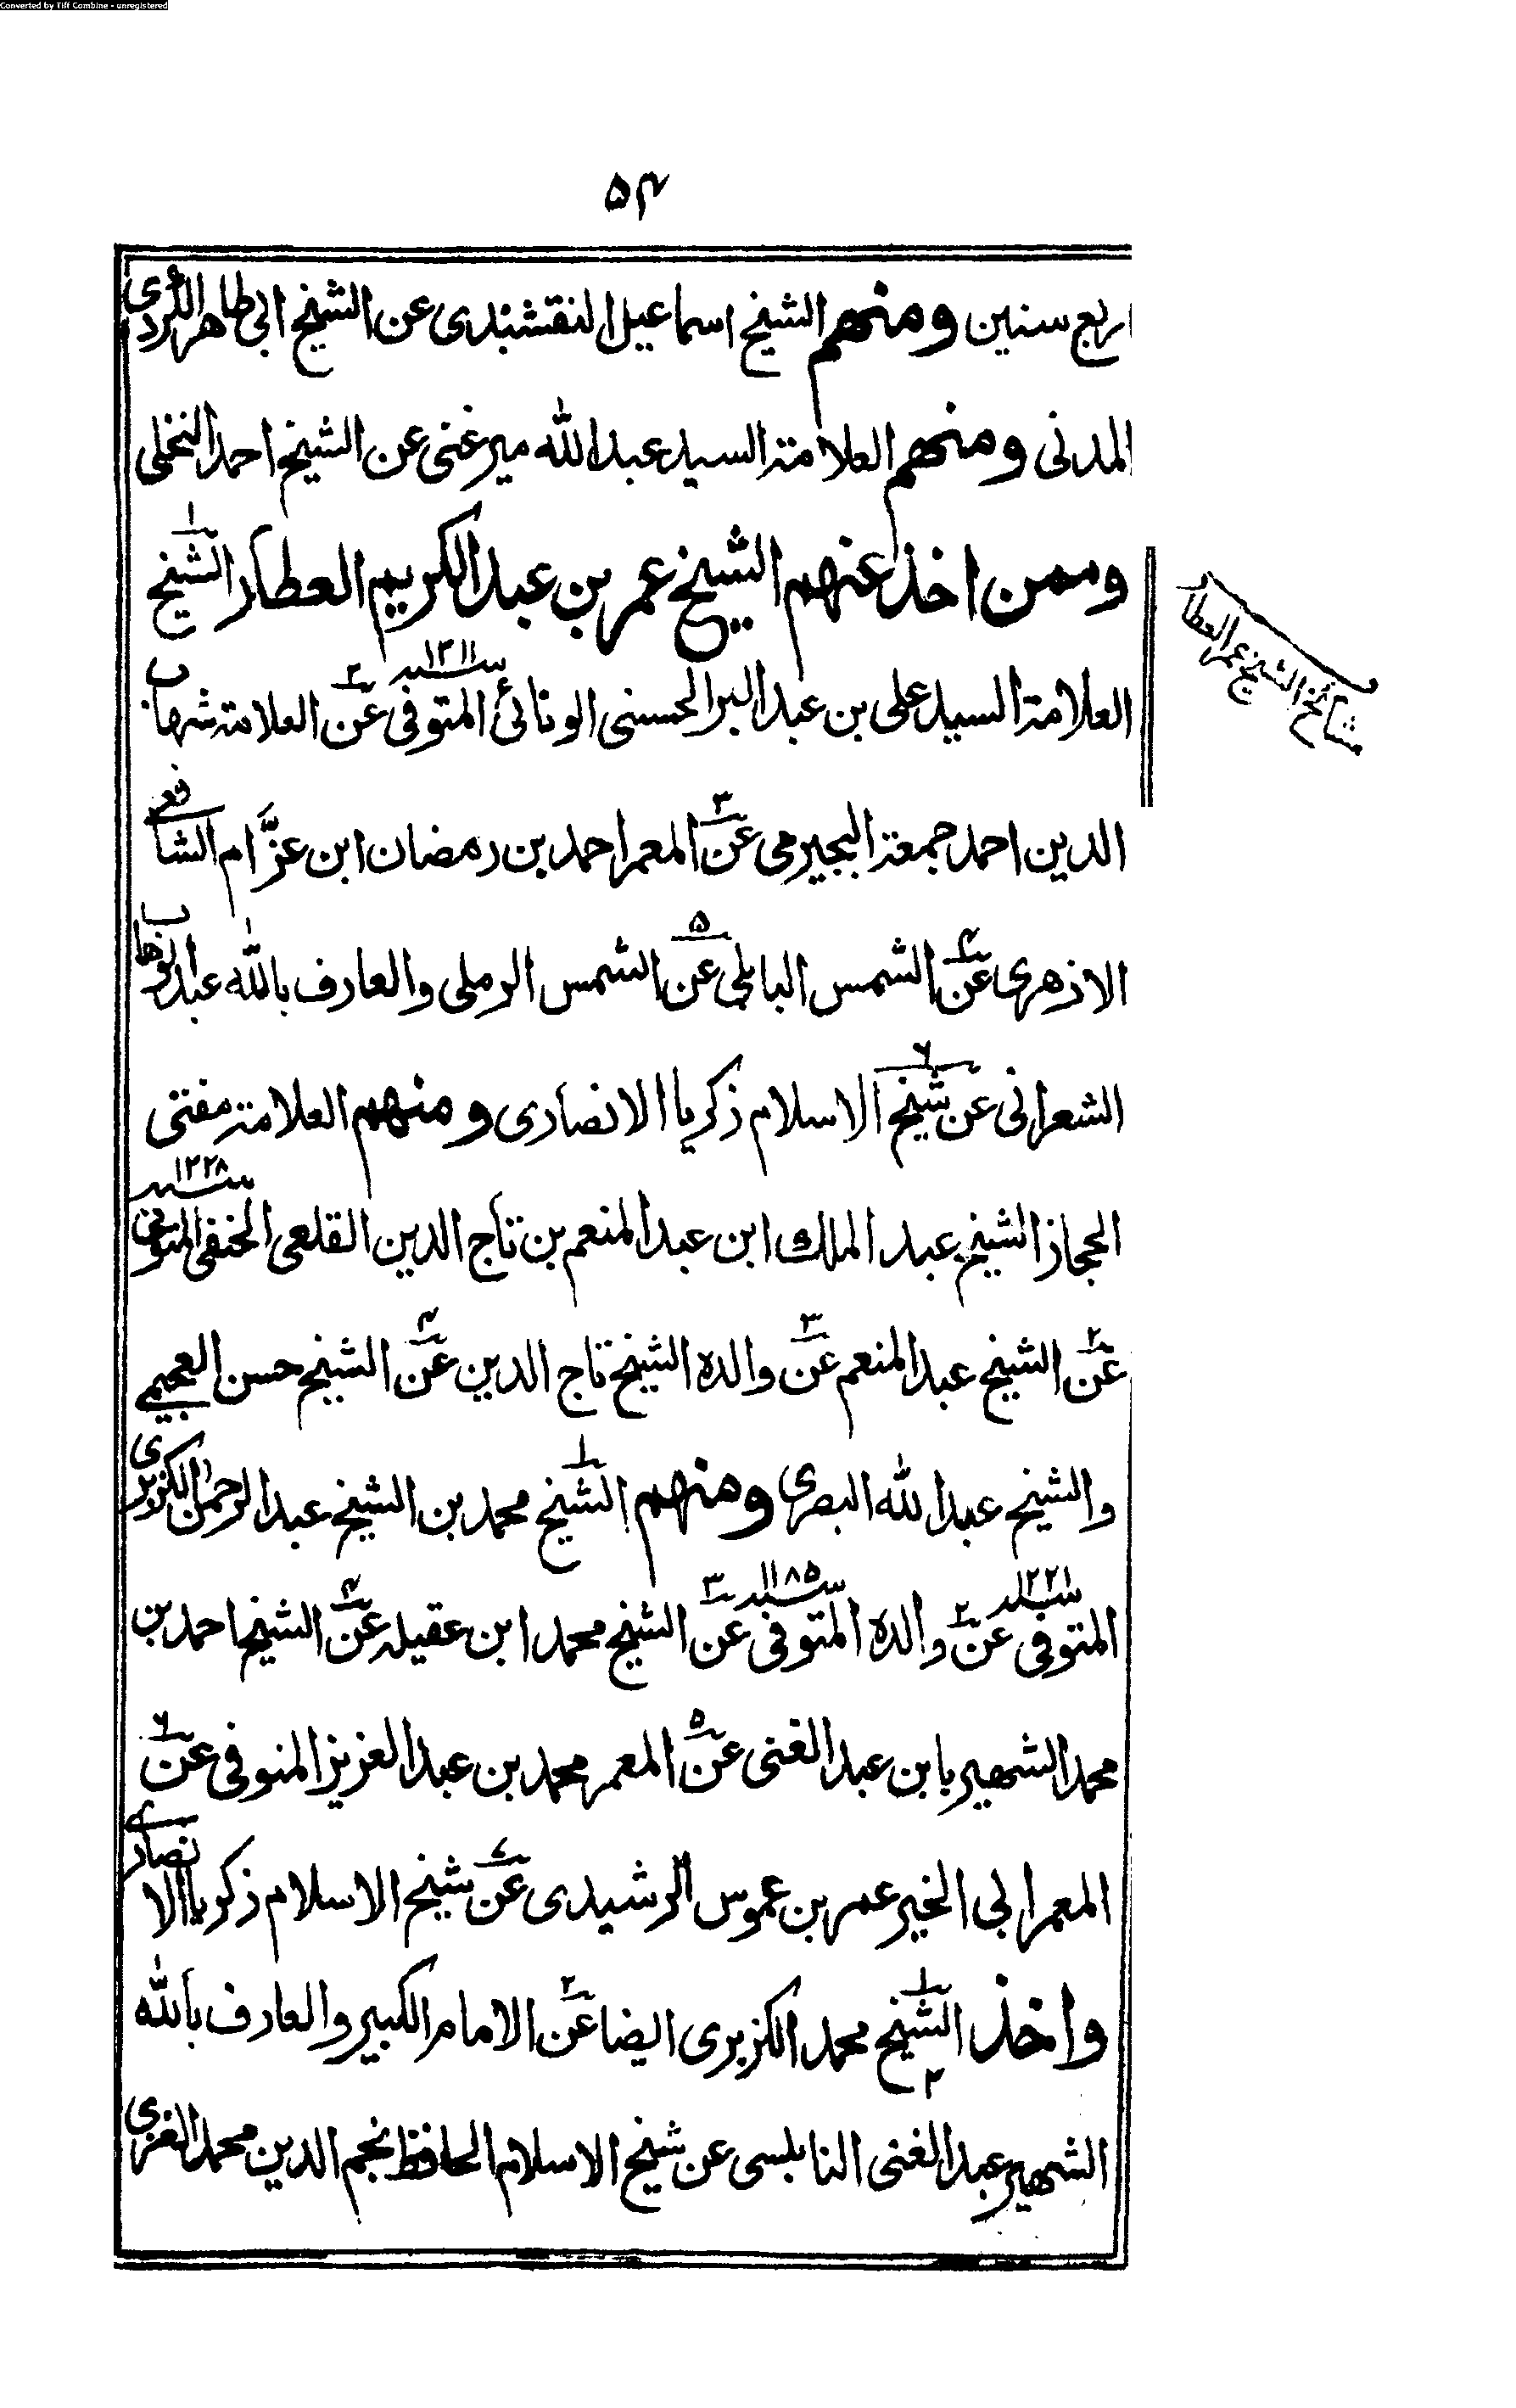 Converted by Tiff Combine - unregistered
۵۴
اربع سنين ومنهم الشيخ اسماعيل النقشبندى عن الشيخ ابى طاهر الكردى
المدنى ومنهم العلامة السيد عبد الله ميرغنى عن الشيخ احمد النخلى
وممن اخذ عنهم الشيخ عمر بن عبد الكريم العطار الشيخ
العلامة السيد على بن عبد البر الحسنى الونائى المتوفى ١٢١١ عن العلامة شهاب
الدين احمد جمعة البجيرمى عن المعمر احمد بن رمضان ابن عزّام الشافعى
الازهرى عن الشمس البابلى عن الشمس الرملى والعارف بالله عبد الوهاب
الشعرانى عن شيخ الاسلام زكريا الانصارى ومنهم العلامة مفتى
الحجاز الشيخ عبد الملك ابن عبد المنعم بن تاج الدين القلعى الحنفى المتوفى ١٢٢٨
عن الشيخ عبد المنعم عن والده الشيخ تاج الدين عن الشيخ حسن العجيمى
والشيخ عبد الله البصرى ومنهم الشيخ محمد بن الشيخ عبد الرحمن الكزبرى
المتوفى ١٢٢١ عن والده المتوفى ١١٨٥ عن الشيخ محمد ابن عقيلة عن الشيخ احمد بن
محمد الشهير بابن عبد الغنى عن المعمر محمد بن عبد العزيز المنوفى عن
المعمر ابى الخير عمر بن عموس الرشيدى عن شيخ الاسلام زكريا الانصارى
واخذ الشيخ محمد الكزبرى ايضا عن الامام الكبير والعارف بالله
الشهير عبد الغنى النابلسى عن شيخ الاسلام الحافظ نجم الدين محمد الغزى
مشائخ الشيخ عمر العطار